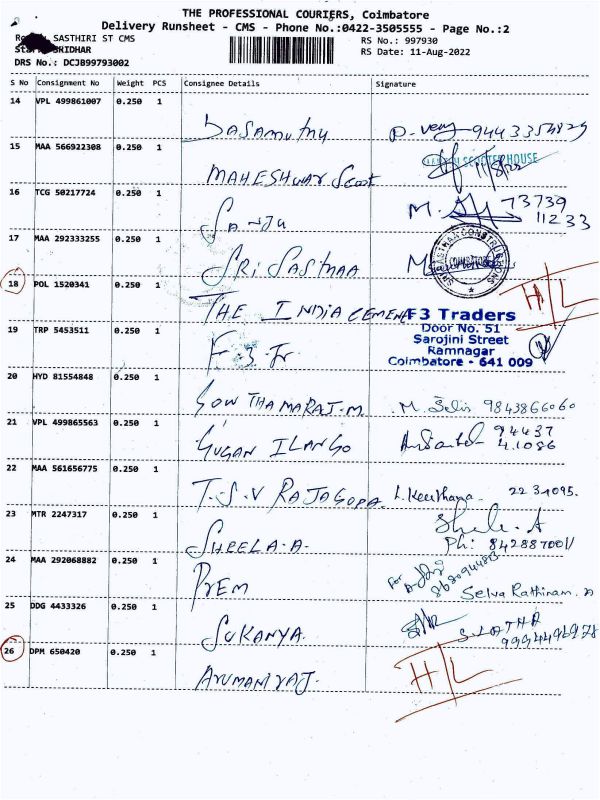 THE PROFESSIONAL COURIERS, Coimbatore
Delivery Runsheet - CMS - Phone No.:0422-3505555 - Page No.:2
SASTHIRI ST CMS RS No.: 997930
SRIDHAR RS Date: 11-Aug-2022
DRS No.: DCJB99793002
S No Consignment No Weight PCS Consignee Details Signature
14 VPL 499861007 0.250 1
Dasamuthu 9443354829
15 MAA 566922308 0.250 1 SCOOTER HOUSE
MAHESHWAR Scoot 11/8/22
16 TCG 50217724 0.250 1
Sanju M. 73739
11233
17 MAA 292333255 0.250 1
SRI SASTHAA SRI SASTHAA CONSTRUCTIONS COIMBATORE
18 POL 1520341 0.250 1
THE INDIA CEMENT H/L
19 TRP 5453511 0.250 1
F-3 Tr
F3 Traders
Door No. 51
Sarojini Street
Ramnagar
Coimbatore - 641 009
20 HYD 81554848 0.250 1
GOWTHAMARAJ.M. M. Selvi 9843866060
21 VPL 499865563 0.250 1
GUGAN ILANGO 94437
41086
22 MAA 561656775 0.250 1
T.S.V RAJAGOPA L. Keerthana
23 MTR 2247317 0.250 1
SHEELA.A. Sheela.A
Ph: 8428870011
24 MAA 292068882 0.250 1
PREM for Selva Rathinam.
25 DDG 4433326 0.250 1
SUKANYA. S. LATHA
26 DPM 650420 0.250 1
Arumaniraj. H/L